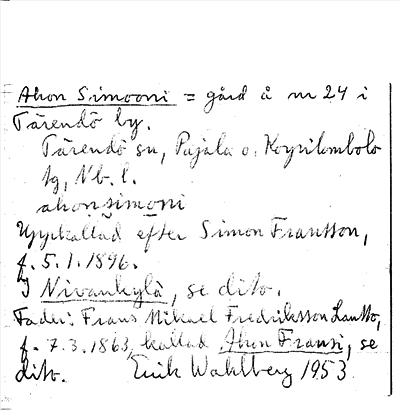 Ahon Simooni = gård å nr 24 i
Tärendö by.
Tärendö sn, Pajala o. Korpilombolo
tg, Nb. l.
ahonsimoni
Uppkallad efter Simon Fransson,
f. 5.1.1896.
I Nivankylä, se dito.
Fader: Frans Mikael Fredriksson Lantto,
f. 7.3.1863, kallad Ahon Fransi, se
dito. Erik Wahlberg 1953